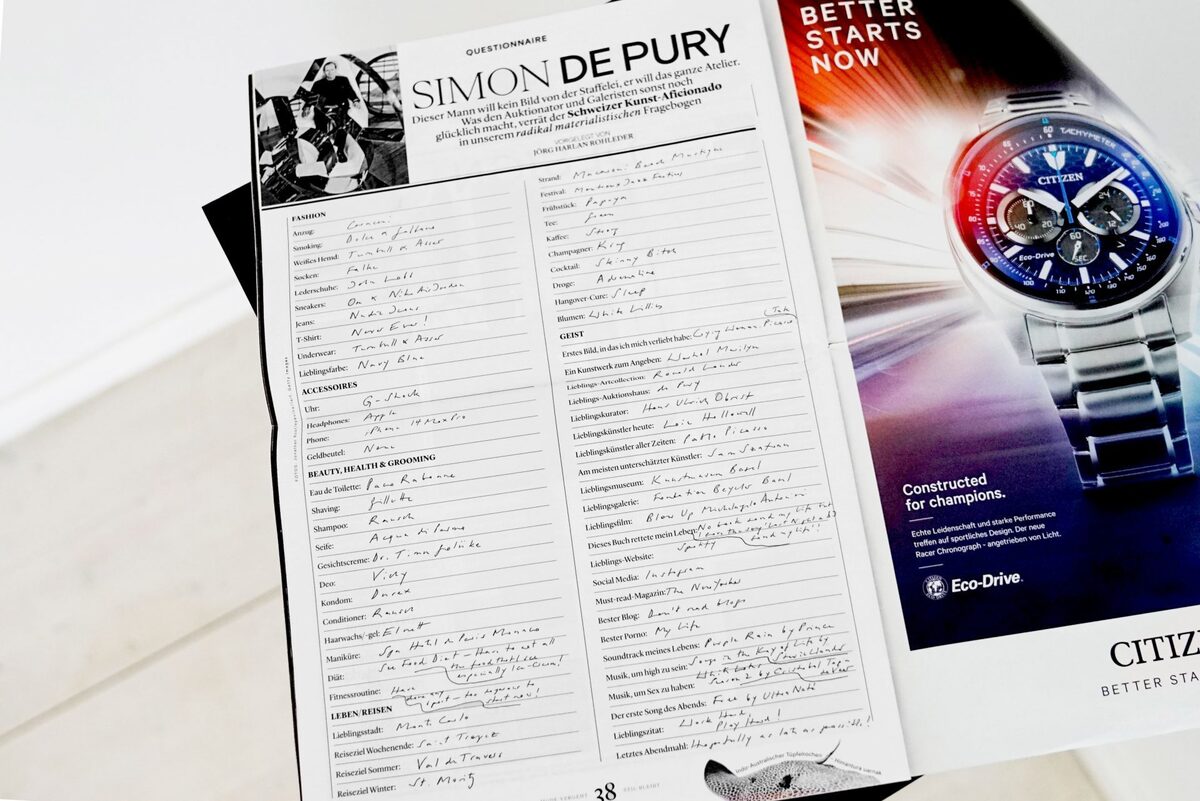 QUESTIONNAIRE
SIMON DE PURY
Dieser Mann will kein Bild von der Staffelei, er will das ganze Atelier.
Was den Auktionator und Galeristen sonst noch
glücklich macht, verrät der Schweizer Kunst-Aficionado
in unserem radikal materialistischen Fragebogen
VORGELEGT VON
JÖRG HARLAN ROHLEDER
FASHION
Anzug:
Smoking: Dolce &
Weißes Hemd: Turnbull & Asser
Socken: Falke
Lederschuhe: John Lobb
Sneakers: On & Nike Air Jordan
Jeans: Nudie Jeans
T-Shirt: Never Ever!
Underwear: Turnbull & Asser
Lieblingsfarbe: Navy Blue
ACCESSOIRES
Uhr: G-Shock
Headphones: Apple
Phone: iPhone 14 Max Pro
Geldbeutel: None
BEAUTY, HEALTH & GROOMING
Eau de Toilette: Paco Rabanne
Shaving: Gillette
Shampoo: Rausch
Seife: Acqua di Parma
Gesichtscreme: Dr. Timm Golücke
Deo: Vichy
Kondom: Durex
Conditioner: Rausch
Haarwachs/-gel: Elnett
Maniküre: Spa Hôtel de Paris Monaco
Diät: See Food Diet - Have to eat all
the food that I see
especially Ice-Cream!
Fitnessroutine: Have
sport - too
start now!
LEBEN/REISEN
Lieblingsstadt: Monte Carlo
Reiseziel Wochenende: Saint Tropez
Reiseziel Sommer: Val de Travers
Reiseziel Winter: St. Moritz
Strand: Beach Mustique
Festival: Montreux Jazz Festival
Frühstück: Papaya
Tee: Green
Kaffee: Strong
Champagner: Krug
Cocktail: Skinny Bitch
Droge: Adrenaline
Hangover-Cure: Sleep
Blumen: White Lillies
GEIST
Erstes Bild, in das ich mich verliebt habe: Crying Woman, Picasso
Tate
Ein Kunstwerk zum Angeben: Warhol Marilyn
Lieblings-Artcollection: Ronald Lauder
Lieblings-Auktionshaus: de Pury
Lieblingskurator: Hans Ulrich Obrist
Lieblingskünstler heute: Loie Hollowell
Lieblingskünstler aller Zeiten: Pablo Picasso
Am meisten unterschätzter Künstler: Sam Szafran
Lieblingsmuseum: Kunstmuseum Basel
Lieblingsgalerie: Fondation Beyeler Basel
Lieblingsfilm: Blow Up Michelangelo Antonioni
Dieses Buch rettete mein Leben: No book saved my life but
Lieblings-Website: Spotify
Social Media: Instagram
Must-read-Magazin: The New Yorker
Bester Blog: Don't read blogs
Bester Porno: My Life
Soundtrack meines Lebens: Purple Rain by Prince
Musik, um high zu sein: Songs in the Key of Life by
Stevie Wonder
Musik, um Sex zu haben:
Der erste Song des Abends: Free by Ultra Naté
Lieblingszitat: Work Hard
Play Hard!
Letztes Abendmahl: Hopefully as late as possible!
38
Indo-Australischer Tüpfelrochen
Himantura uarnak
BETTER
STARTS
NOW
TACHYMETER
CITIZEN
Eco-Drive
Constructed
for champions.
Echte Leidenschaft und starke Performance
treffen auf sportliches Design. Der neue
Racer Chronograph - angetrieben von Licht.
Eco-Drive
CITIZ
BETTER STA